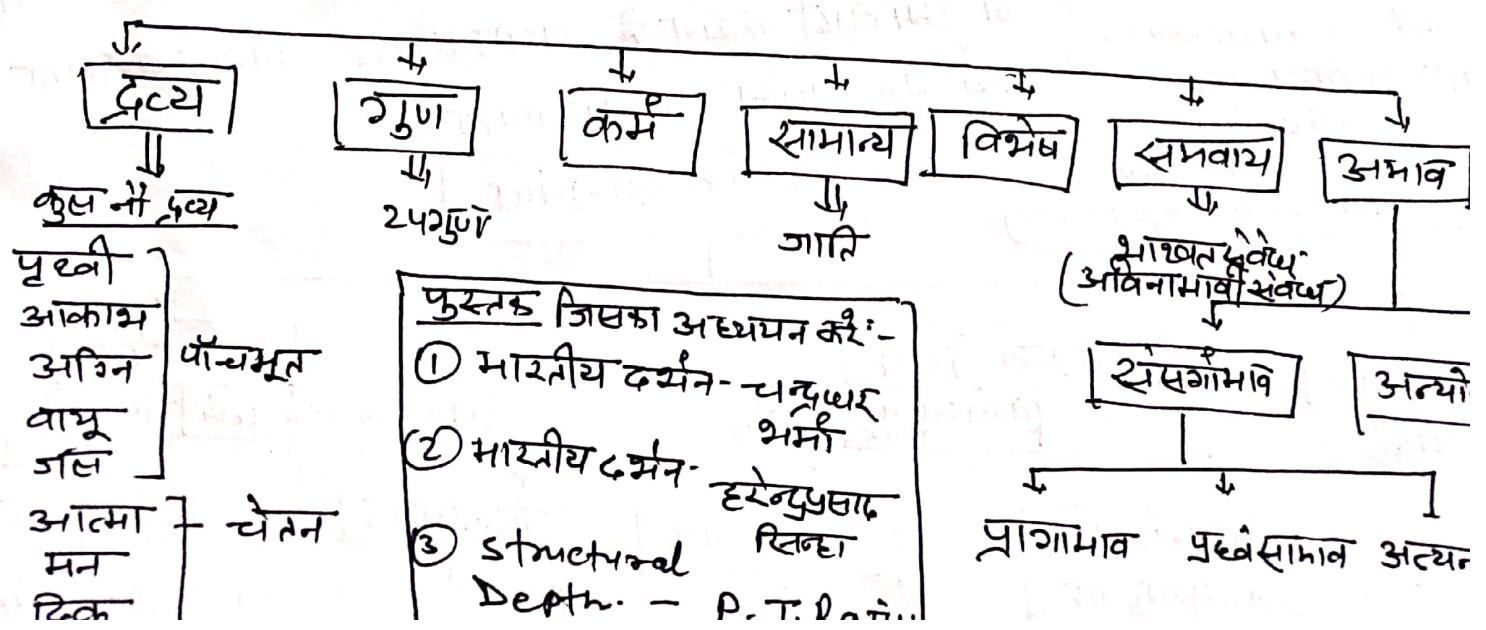 द्रव्य
गुण
कर्म
सामान्य
विशेष
समवाय
अभाव
कुल नौ द्रव्य
24 गुण
जाति
शाश्वत संबंध
(अविनाभावी संबंध)
पृथ्वी
आकाश
अग्नि
वायू
जल
पाँचभूत
आत्मा - चेतन
मन
दिक
पुस्तक जिसका अध्ययन करें:-
① भारतीय दर्शन - चन्द्रधर
शर्मा
② भारतीय दर्शन -
हरेन्द्रप्रसाद
सिन्हा
③ Structural
Depth. - P. T. Raju
संसर्गाभाव
अन्यो
प्रागाभाव
प्रध्वंसाभाव
अत्यन